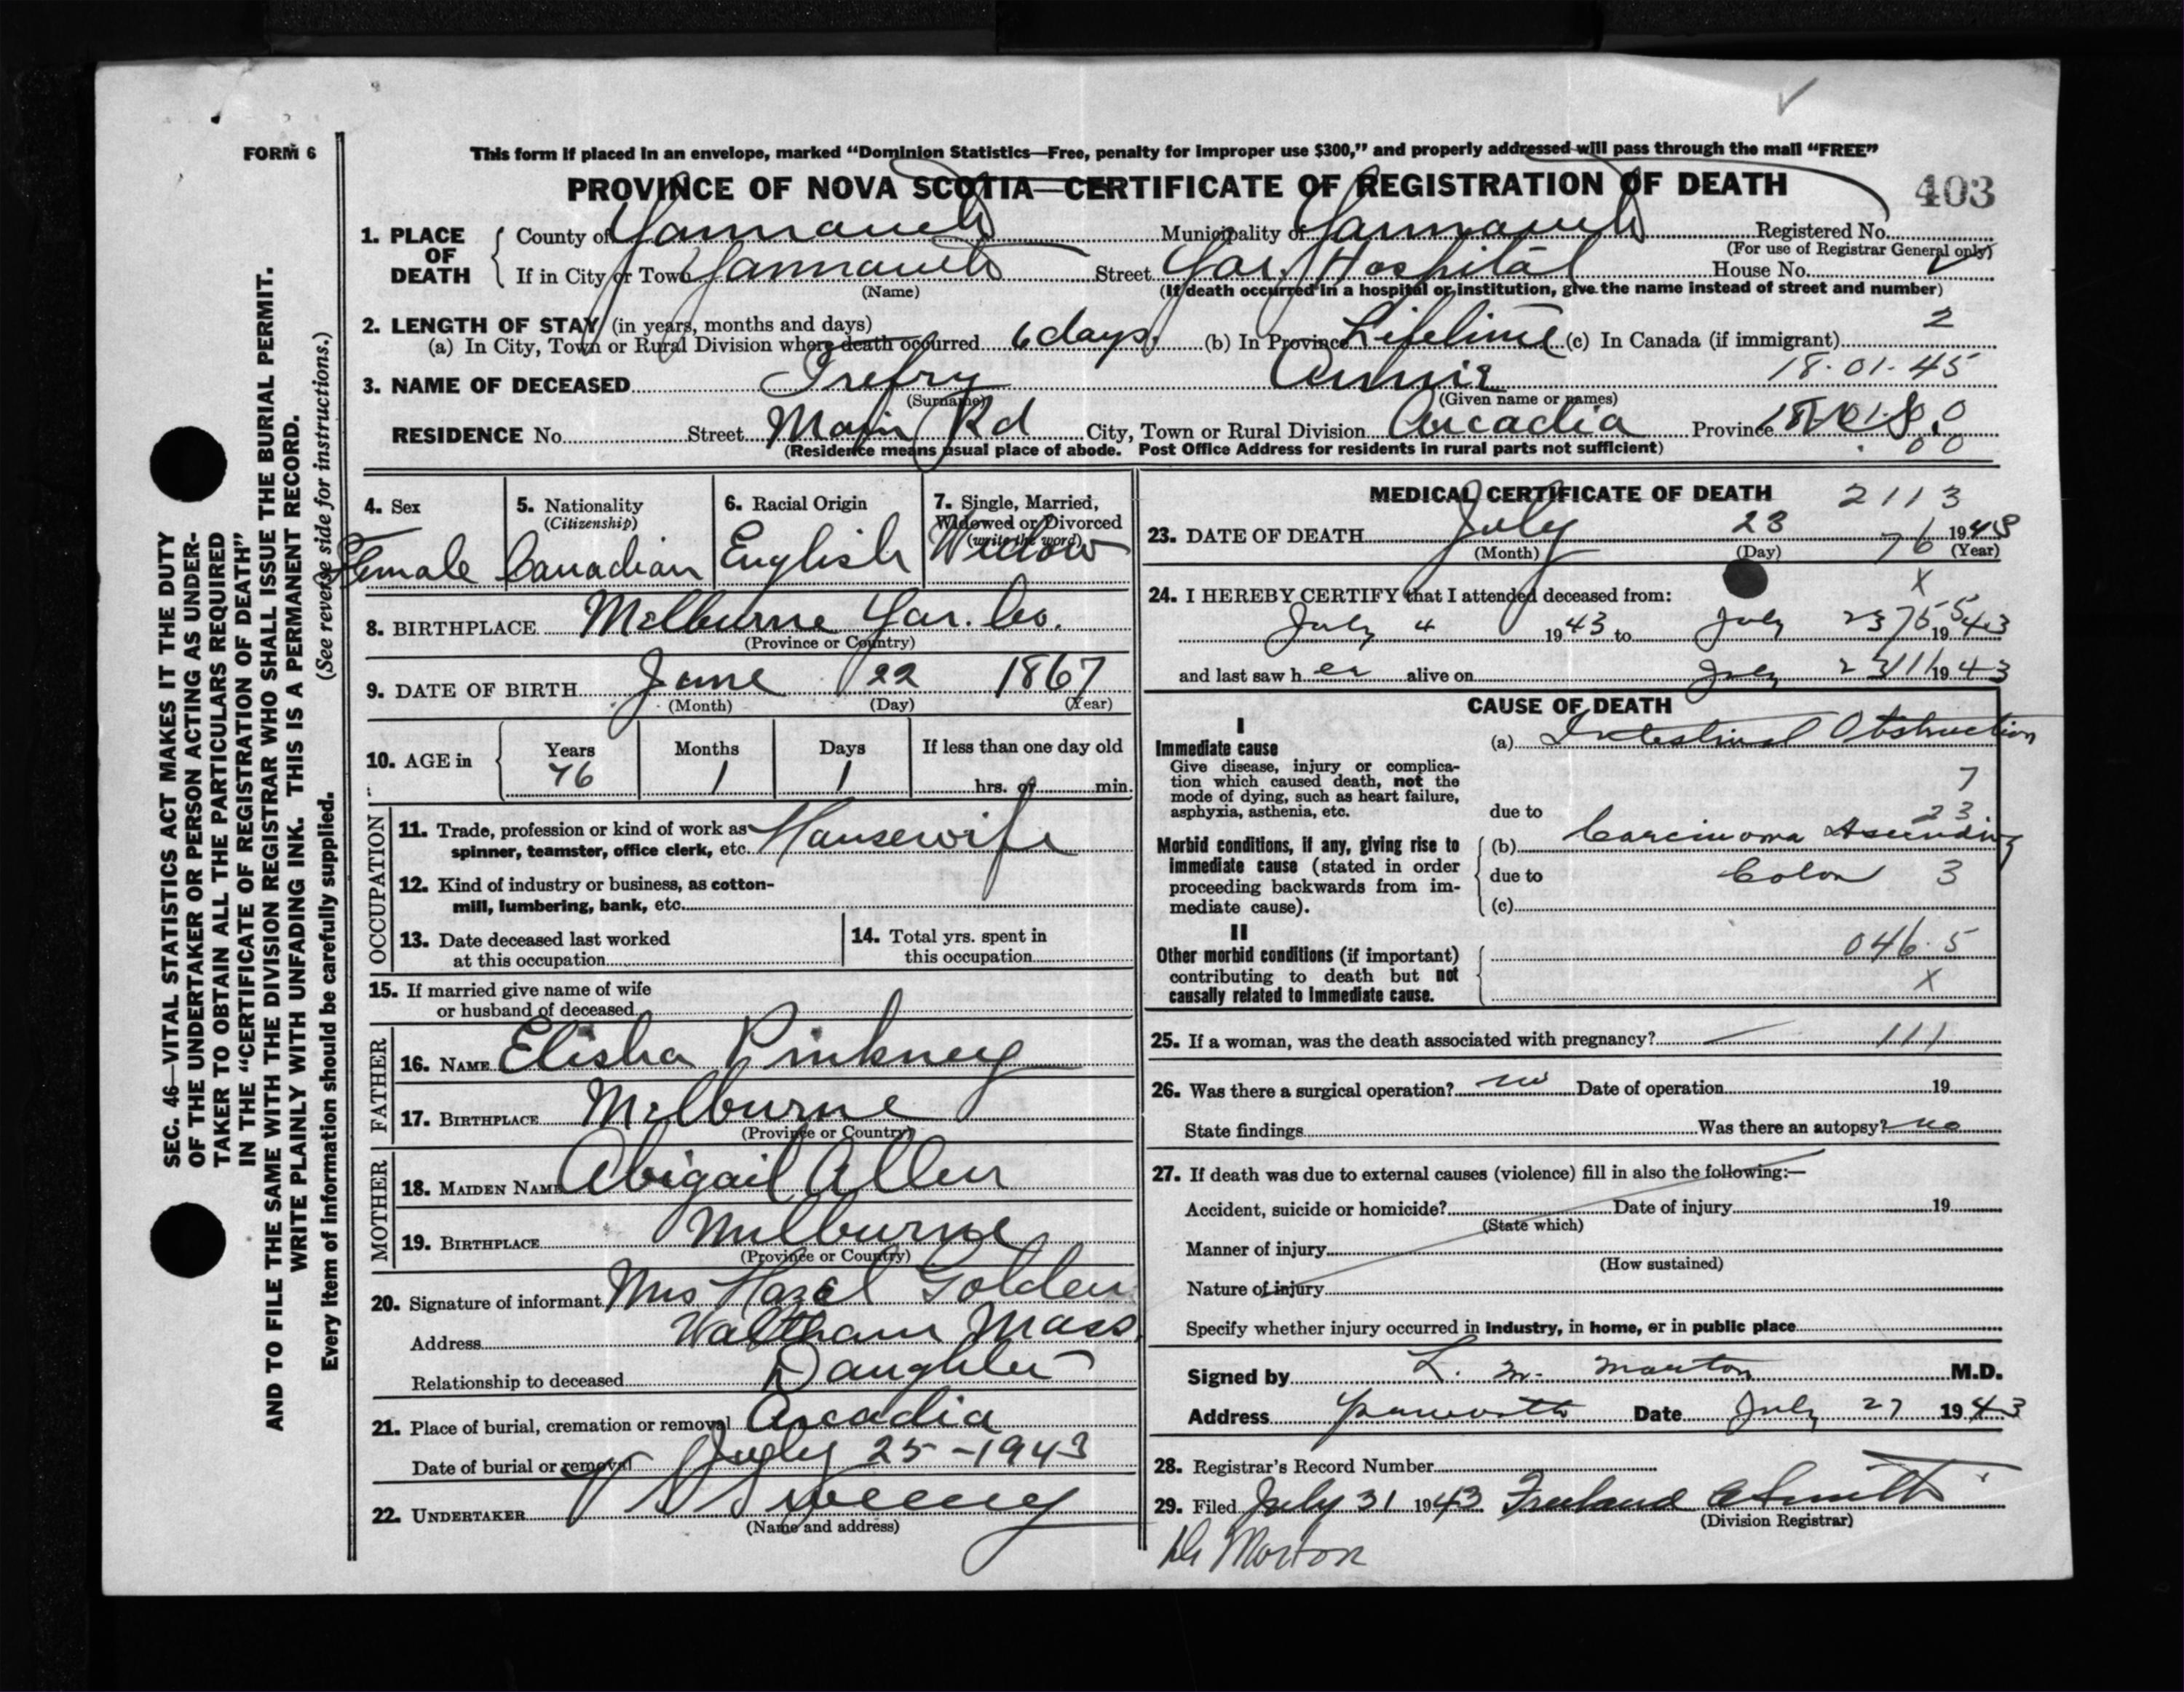 FORM 6
This form if placed in an envelope, marked "Dominion Statistics—Free, penalty for improper use $300," and properly addressed will pass through the mail "FREE"
PROVINCE OF NOVA SCOTIA—CERTIFICATE OF REGISTRATION OF DEATH
403
1. PLACE OF DEATH
County of Yarmouth Municipality of Yarmouth Registered No.
(For use of Registrar General only)
If in City or Town Yarmouth Street Yar. Hospital House No.
(Name) (If death occurred in a hospital or institution, give the name instead of street and number)
2. LENGTH OF STAY (in years, months and days)
2
(a) In City, Town or Rural Division where death occurred 6 days. (b) In Province Lifetime (c) In Canada (if immigrant)
3. NAME OF DECEASED Trefry Annie 18.01.45
(Surname) (Given name or names)
RESIDENCE No. Street Main Rd City, Town or Rural Division Arcadia Province
(Residence means usual place of abode. Post Office Address for residents in rural parts not sufficient) 00
4. Sex
Female
5. Nationality
(Citizenship)
Canadian
6. Racial Origin
English
7. Single, Married,
Widowed or Divorced
(write the word)
Widow
8. BIRTHPLACE Melburne Yar. Co.
(Province or Country)
9. DATE OF BIRTH June 22 1867
(Month) (Day) (Year)
10. AGE in
Years Months Days If less than one day old
76 1 1 hrs. or min.
OCCUPATION
11. Trade, profession or kind of work as
spinner, teamster, office clerk, etc. Housewife
12. Kind of industry or business, as cotton-
mill, lumbering, bank, etc.
13. Date deceased last worked
at this occupation
14. Total yrs. spent in
this occupation
15. If married give name of wife
or husband of deceased
FATHER
16. NAME Elisha Pinkney
17. BIRTHPLACE Melburne
(Province or Country)
MOTHER
18. MAIDEN NAME Abigail Allen
19. BIRTHPLACE Melburne
(Province or Country)
20. Signature of informant Mrs Hazel Golden
Address Waltham Mass.
Relationship to deceased Daughter
21. Place of burial, cremation or removal Arcadia
Date of burial or removal July 25-1943
22. UNDERTAKER V S Sweeny
(Name and address)
MEDICAL CERTIFICATE OF DEATH 2113
23. DATE OF DEATH July 23 1943
(Month) (Day) 76 (Year)
X
24. I HEREBY CERTIFY that I attended deceased from:
July 4 1943 to July 23 1943
and last saw her alive on July 23 1943
CAUSE OF DEATH
I
Immediate cause
Give disease, injury or complica-
tion which caused death, not the
mode of dying, such as heart failure,
asphyxia, asthenia, etc.
(a) Intestinal Obstruction
7
due to 23
Morbid conditions, if any, giving rise to
immediate cause (stated in order
proceeding backwards from im-
mediate cause).
(b) Carcinoma Ascending
due to Colon 3
(c)
II
Other morbid conditions (if important)
contributing to death but not
causally related to immediate cause.
046.5
X
25. If a woman, was the death associated with pregnancy? — 111
26. Was there a surgical operation? no Date of operation 19
State findings Was there an autopsy? no
27. If death was due to external causes (violence) fill in also the following:—
Accident, suicide or homicide? Date of injury 19
(State which)
Manner of injury
(How sustained)
Nature of injury
Specify whether injury occurred in industry, in home, or in public place
Signed by L. M. Morton M.D.
Address Yarmouth Date July 27 1943
28. Registrar's Record Number
29. Filed July 31 1943 Freeland A Smith
(Division Registrar)
Dr Morton
SEC. 46—VITAL STATISTICS ACT MAKES IT THE DUTY
OF THE UNDERTAKER OR PERSON ACTING AS UNDER-
TAKER TO OBTAIN ALL THE PARTICULARS REQUIRED
IN THE "CERTIFICATE OF REGISTRATION OF DEATH"
AND TO FILE THE SAME WITH THE DIVISION REGISTRAR WHO SHALL ISSUE THE BURIAL PERMIT.
WRITE PLAINLY WITH UNFADING INK. THIS IS A PERMANENT RECORD.
Every item of information should be carefully supplied. (See reverse side for instructions.)